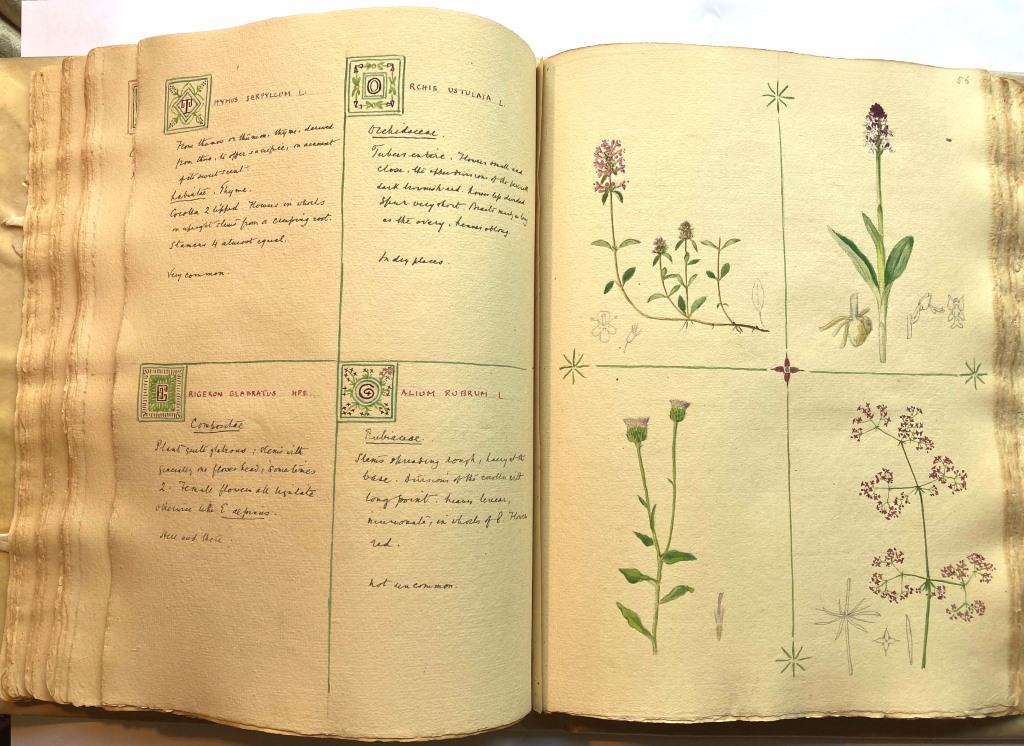 THYMUS SERPYLLUM L.
From thumos or thumon, thyme, derived
from thuo, to offer sacrifice, on account
of its sweet scent
Labiatae. Thyme.
Corolla 2 lipped. Flowers in whorls
on upright stems from a creeping root.
Stamens 4 almost equal.
Very common.
ORCHIS USTULATA L.
Orchidaceae.
Tubers entire. Flowers small and
close, the upper divisions of the
dark brownish red. Lower lip
Spur very short. Bracts nearly as long
as the ovary. Leaves oblong
In dry places.
ERIGERON GLABRATUS HPE.
Compositae
Plant quite glabrous; stems with
usually one flower head, sometimes
2. Female flowers all ligulate
otherwise like E. alpinus.
Here and there.
GALIUM RUBRUM L
Rubiaceae.
Stems spreading rough, hairy at the
base. Divisions of the corolla with
long point. Leaves linear,
mucronate, in whorls of 8. Flowers
red.
Not uncommon.
56